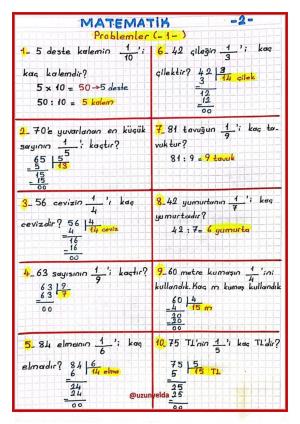 MATEMATİK -2-
Problemler (-1-)
1- 5 deste kalemin 1/10'i kaç
kaç kalemdir?
5 x 10 = 50 → 5 deste
50 : 10 = 5 kalem
2- 70'e yuvarlanan en küçük
sayının 1/5'i kaçtır?
65 | 5
5 | 13
15
15
00
3- 56 cevizin 1/4'i kaç
cevizdir? 56 | 4
4 | 14 ceviz
16
16
00
4- 63 sayısının 1/9'i kaçtır?
63 | 9
63 | 7
00
5- 84 elmanın 1/6'i kaç
elmadır? 84 | 6
6 | 14 elma
24
24
00
6- 42 çileğin 1/3'i kaç
çilektir? 42 | 3
3 | 14 çilek
12
12
00
7- 81 tavuğun 1/9'i kaç ta-
vuktur?
81 : 9 = 9 tavuk
8- 42 yumurtanın 1/7'i kaç
yumurtadır?
42 : 7 = 6 yumurta
9- 60 metre kumaşın 1/4'ini
kullandık. Kaç m kumaş kullandık
60 | 4
4 | 15 m
20
20
00
10. 75 TL'nin 1/5'i kaç TL'dir?
75 | 5
5 | 15 TL
25
25
00
@uzunyelda